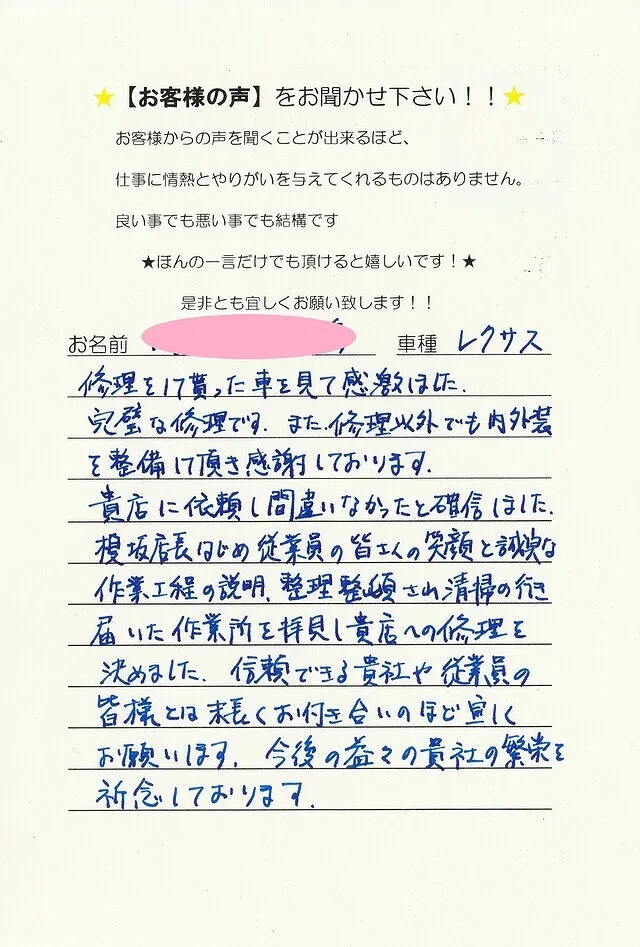 ★【お客様の声】をお聞かせ下さい！！★
お客様からの声を聞くことが出来るほど、
仕事に情熱とやりがいを与えてくれるものはありません。
良い事でも悪い事でも結構です
★ほんの一言だけでも頂けると嬉しいです！★
是非とも宜しくお願い致します！！
お名前 車種 レクサス
修理をして貰った車を見て感激しました.
完璧な修理です. また、修理以外でも内外装
を整備して頂き感謝しております.
貴店に依頼し間違いなかったと確信しました.
榎坂店長はじめ従業員の皆さんの笑顔と誠実な
作業工程の説明、整理整頓され清掃の行き
届いた作業所を拝見し貴店への修理を
決めました. 信頼できる貴社や従業員の
皆様とは末長くお付き合いのほど宜しく
お願いします. 今後の益々の貴社の繁栄を
祈念しております.